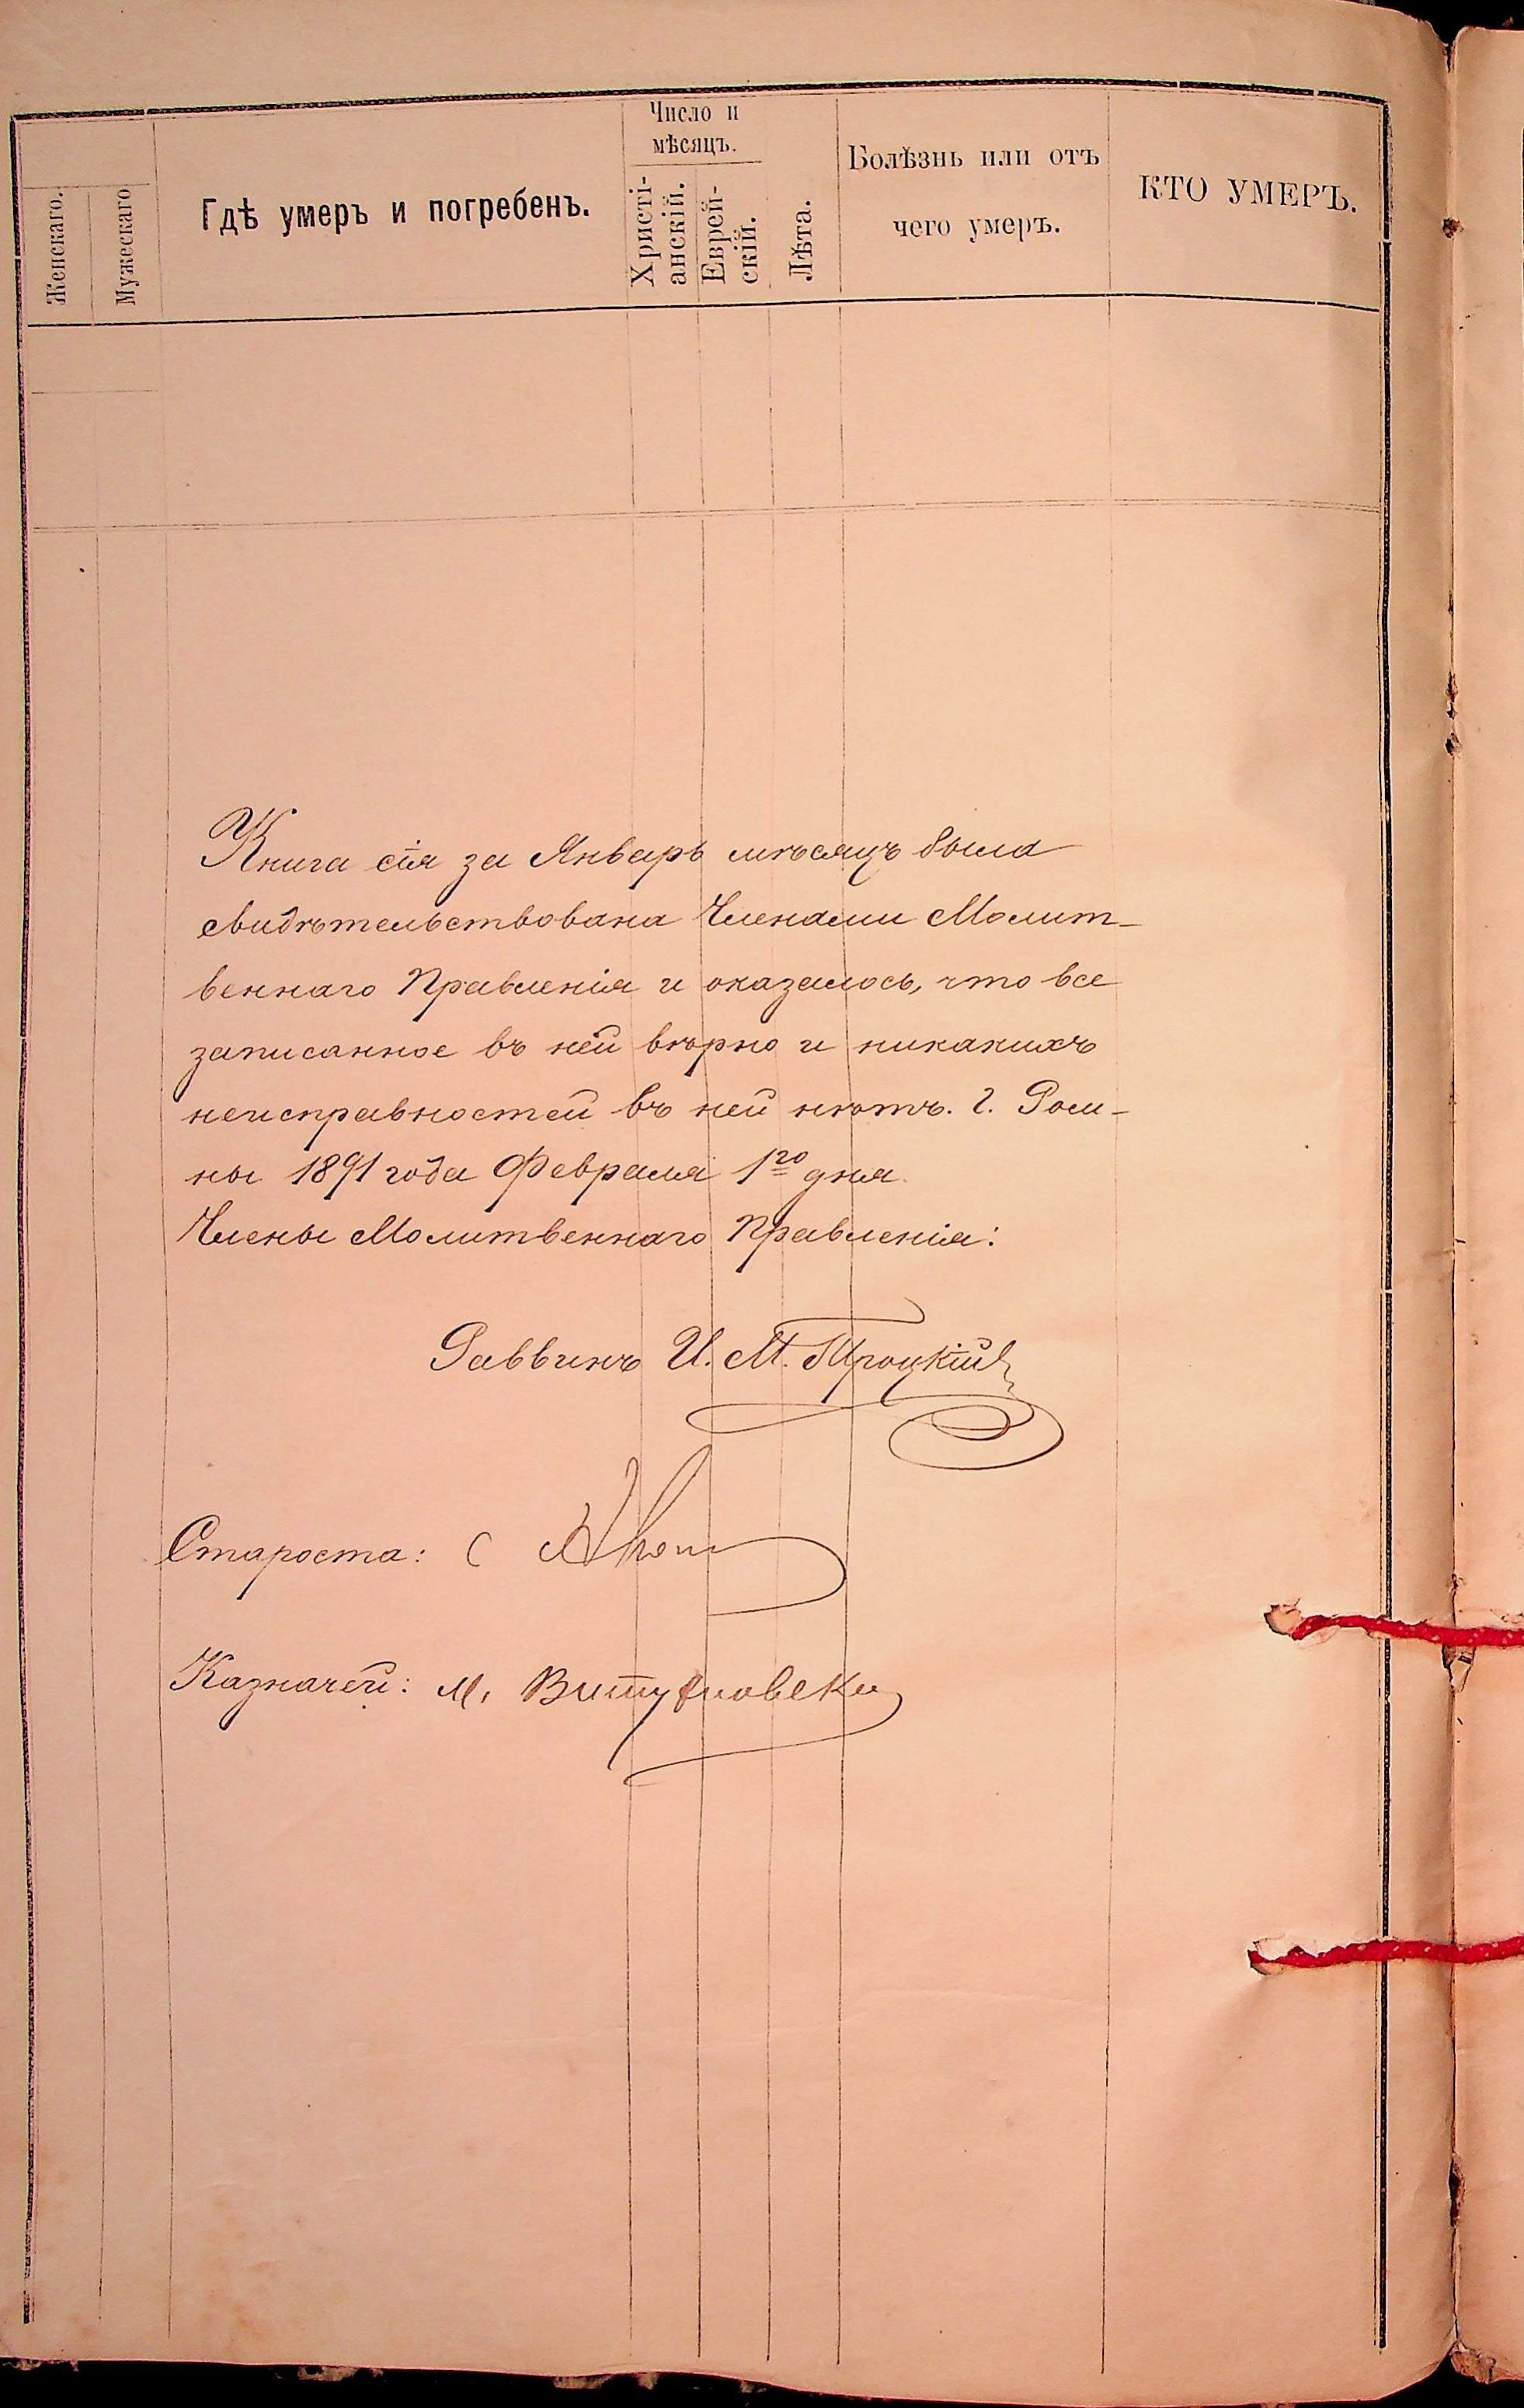 Женскаго.
Мужескаго
Гдѣ умеръ и погребенъ.
Число и
мѣсяцъ.
Христі-
анскій.
Еврей-
скій.
Лѣта.
Болѣзнь или отъ
чего умеръ.
КТО УМЕРЪ.
Книга сія за Январь мѣсяцъ была
свидѣтельствована Членами Молит-
веннаго Правленія и оказалось, что все
записанное въ ней вѣрно и никакихъ
неисправностей въ ней нѣтъ. г. Ром-
ны 1891 года Февраля 1го дня.
Члены Молитвеннаго Правленія:
Раввинъ И. М. Троцкій
Староста: С
Казначей: М.